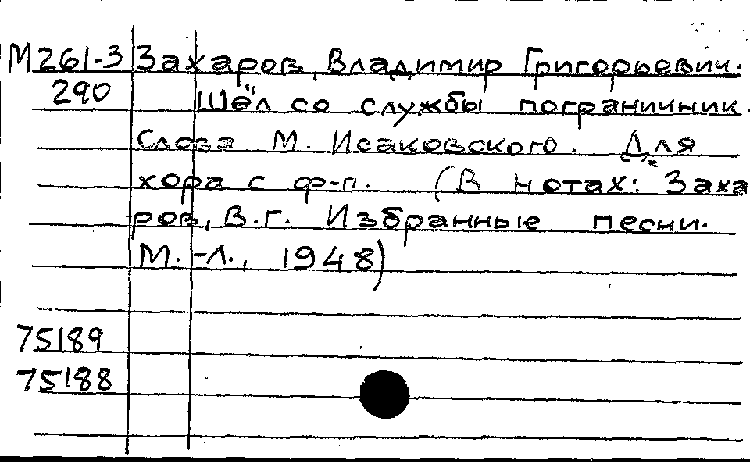 М261-3 Захаров, Владимир Григорьевич.
290 Шёл со службы пограничник.
Слова М. Исаковского. Для
хора с ф-п. (В нотах: Заха
ров, В.Г. Избранные песни.
М.-Л., 1948)
75189
75188